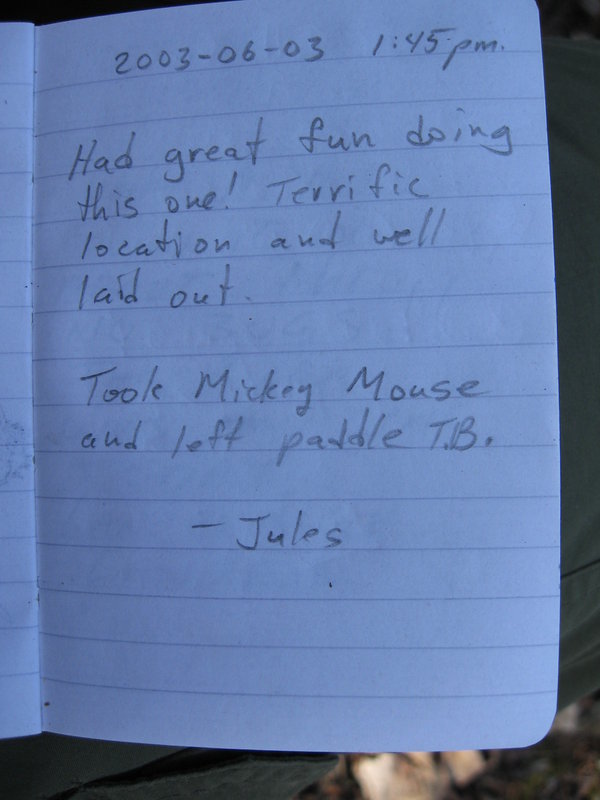 2003-06-03 1:45 pm.
Had great fun doing
this one! Terrific
location and well
laid out.
Took Mickey Mouse
and left paddle T.B.
- Jules